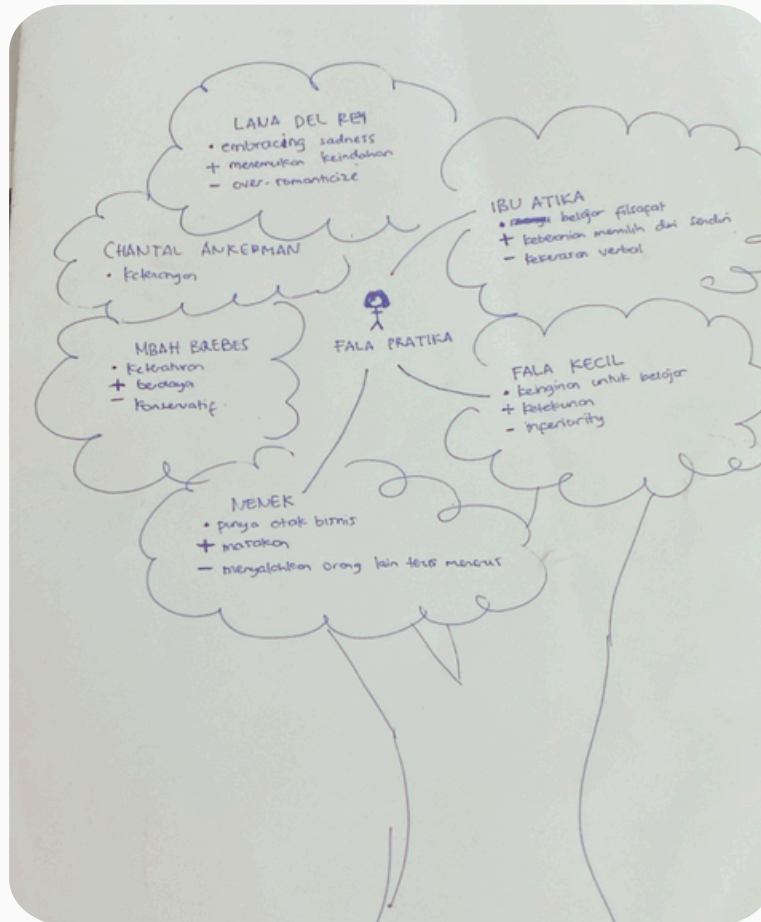 LANA DEL REY
• embracing sadness
+ menemukan keindahan
- over-romanticize
IBU ATIKA
• belajar filsafat
+ keberanian memilih diri sendiri
- kekerasan verbal
CHANTAL ANKERMAN
• Ketenangan
FALA PRATIKA
MBAH BREBES
• Keteraturan
+ berdaya
- Konservatif
FALA KECIL
• keinginan untuk belajar
+ ketekunan
- inferiority
NENEK
• punya otak bisnis
+ masakan
- menyalahkan orang lain terus menerus